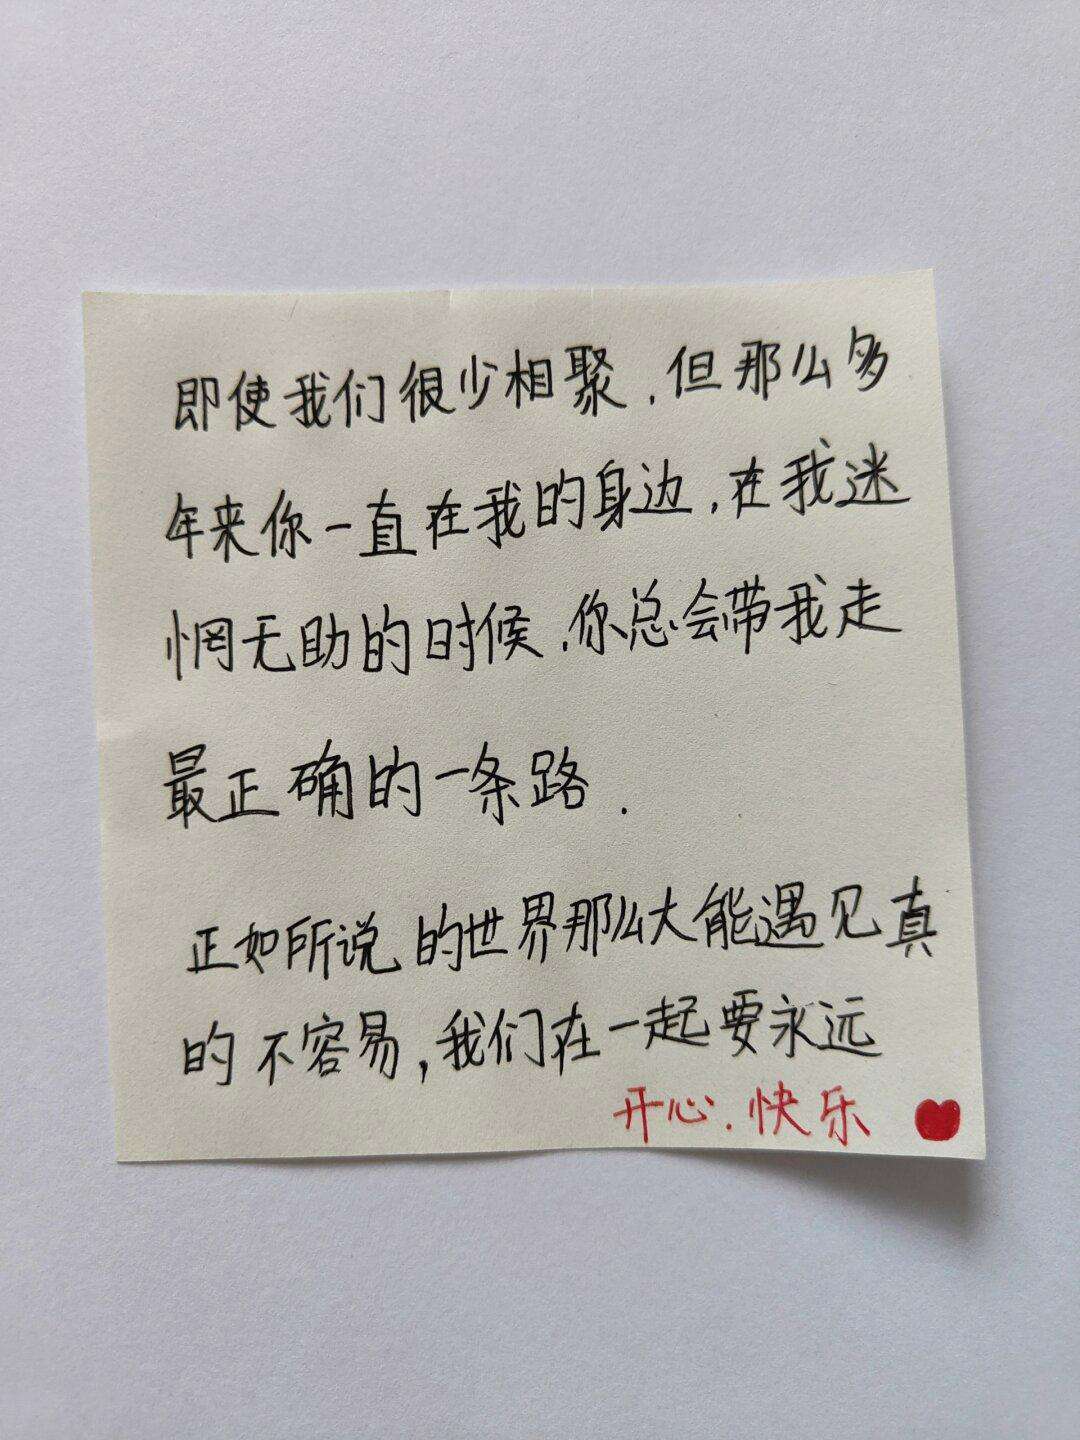 即使我们很少相聚，但那么多
年来你一直在我的身边，在我迷
惘无助的时候，你总会带我走
最正确的一条路．
正如所说的世界那么大能遇见真
的不容易，我们在一起要永远
开心．快乐